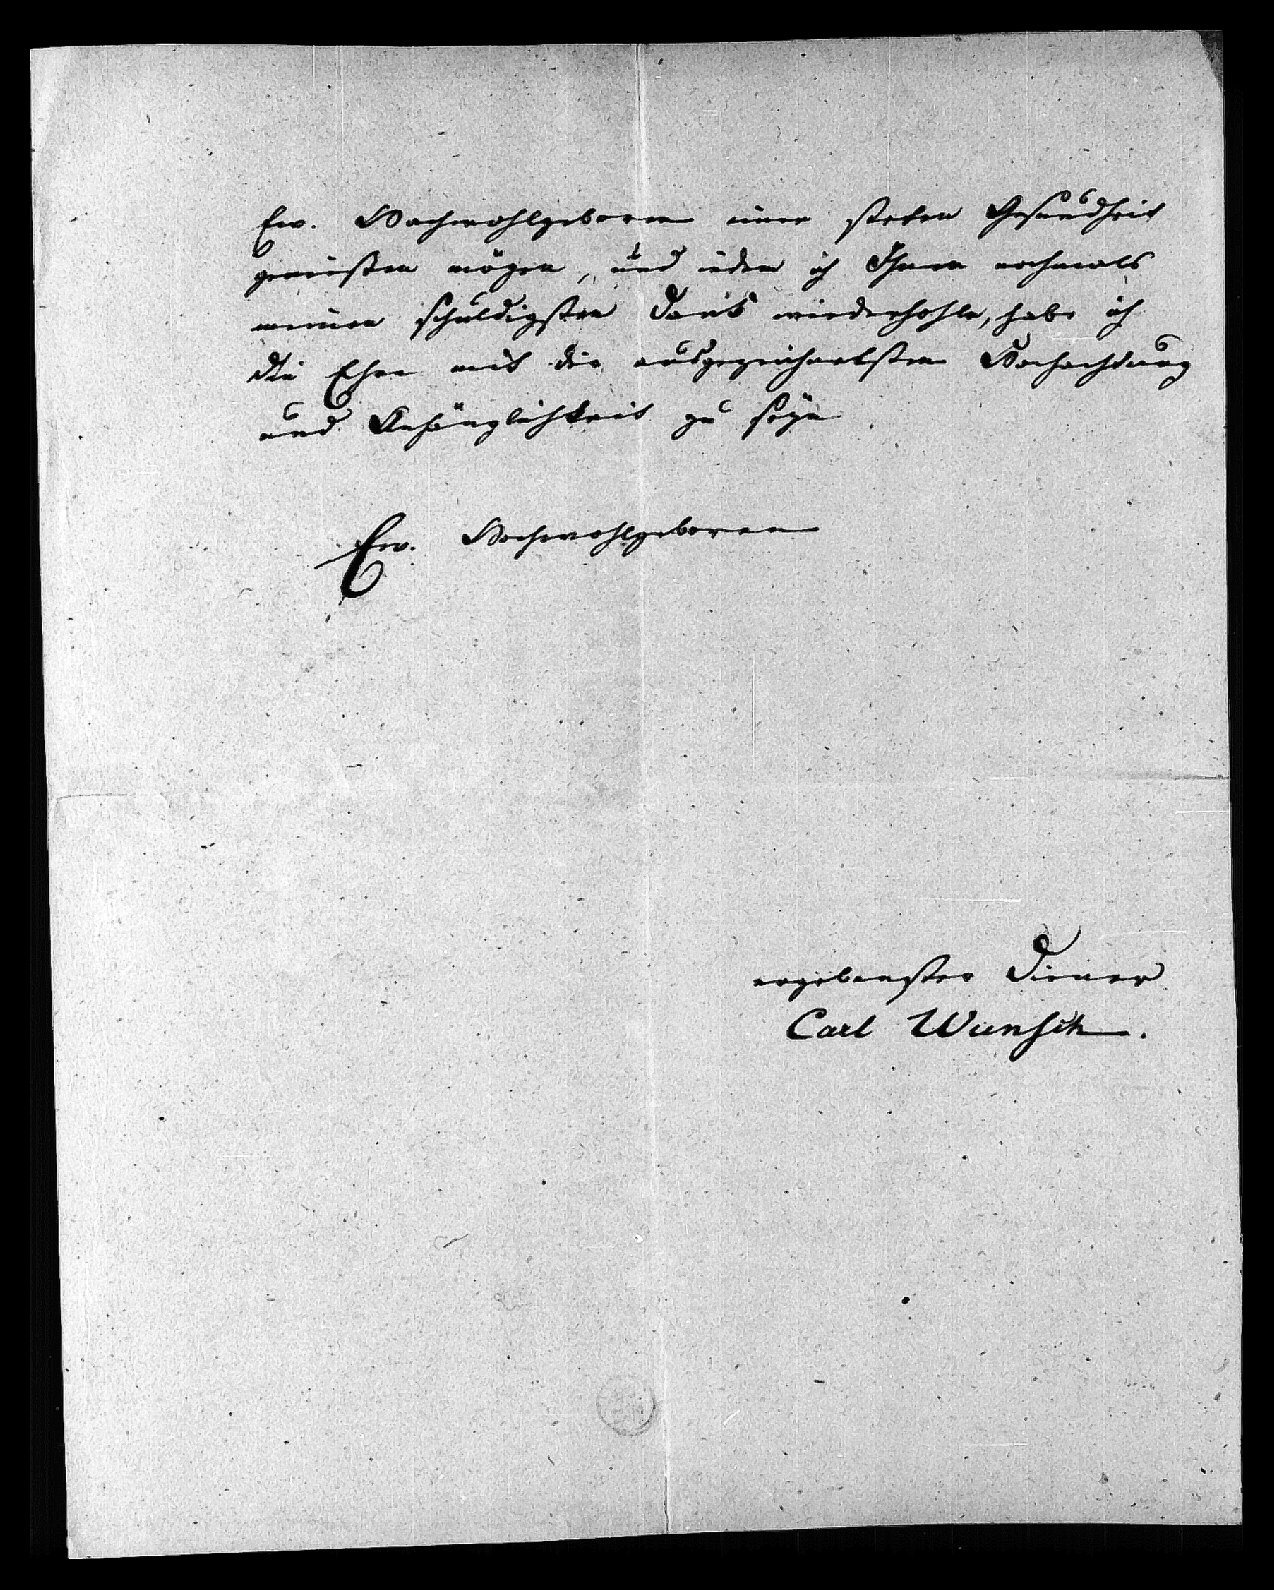 Ew. Hochwohlgeboren einer steten Gesundheit
genießen mögen, und indem ich Ihnen nochmals
meinen schuldigsten Dank wiederhohle, habe ich
die Ehre mit der ausgezeichnetsten Hochachtung
und Anhänglichkeit zu seyn
Ew. Hochwohlgeboren
ergebenster Diener
Carl Wunsch.